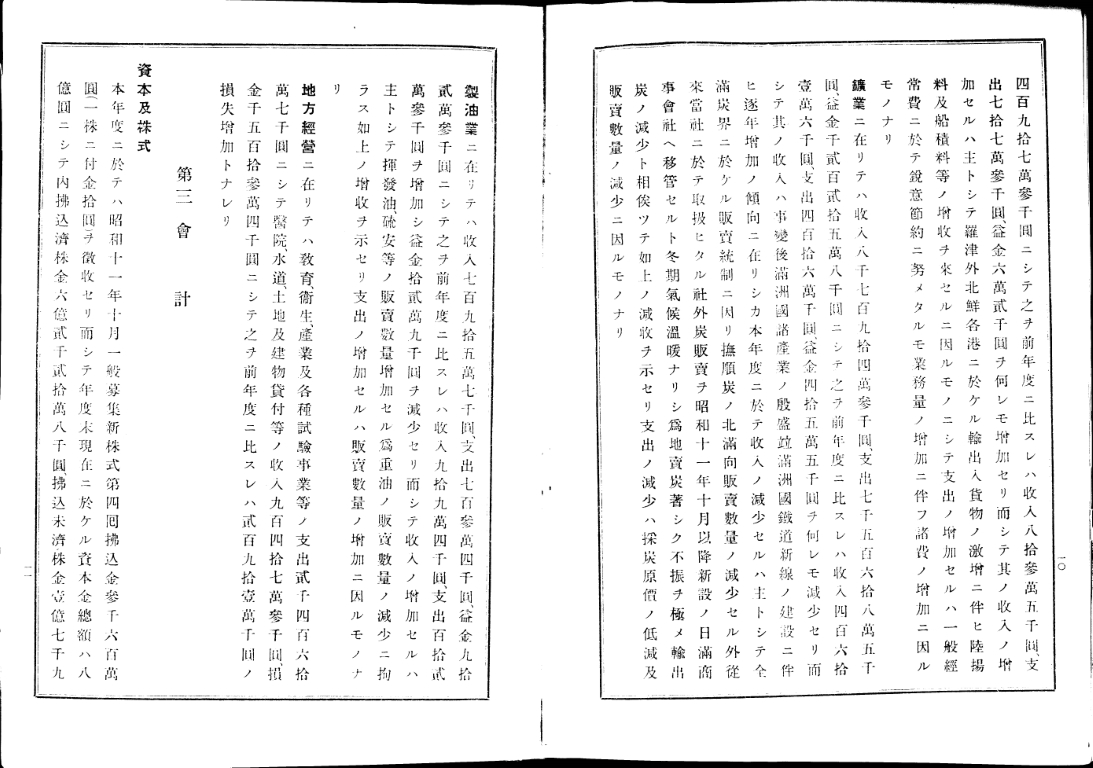 四百九拾七萬參千圓ニシテ之ヲ前年度ニ比スレハ收入八拾參萬五千圓、支
出七拾七萬參千圓、益金六萬貳千圓ヲ何レモ增加セリ而シテ其ノ收入ノ增
加セルハ主トシテ羅津外北鮮各港ニ於ケル輸出入貨物ノ激增ニ伴ヒ陸揚
料及船積料等ノ增收ヲ來セルニ因ルモノニシテ支出ノ增加セルハ一般經
常費ニ於テ銳意節約ニ努メタルモ業務量ノ增加ニ伴フ諸費ノ增加ニ因ル
モノナリ
鑛業ニ在リテハ收入八千七百九拾四萬參千圓、支出七千五百六拾八萬五千
圓、益金千貳百貳拾五萬八千圓ニシテ之ヲ前年度ニ比スレハ收入四百六拾
壹萬六千圓、支出四百拾六萬千圓、益金四拾五萬五千圓ヲ何レモ減少セリ而
シテ其ノ收入ハ事變後滿洲國諸產業ノ殷盛竝滿洲國鐵道新線ノ建設ニ伴
ヒ逐年增加ノ傾向ニ在リシカ本年度ニ於テ收入ノ減少セルハ主トシテ全
滿炭界ニ於ケル販賣統制ニ因リ撫順炭ノ北滿向販賣數量ノ減少セル外從
來當社ニ於テ取扱ヒタル社外炭販賣ヲ昭和十一年十月以降新設ノ日滿商
事會社ヘ移管セルト冬期氣候溫暖ナリシ爲地賣炭著シク不振ヲ極メ輸出
炭ノ減少ト相俟ツテ如上ノ減收ヲ示セリ支出ノ減少ハ採炭原價ノ低減及
販賣數量ノ減少ニ因ルモノナリ
一〇
製油業ニ在リテハ收入七百九拾五萬七千圓、支出七百參萬四千圓、益金九拾
貳萬參千圓ニシテ之ヲ前年度ニ比スレハ收入九拾九萬四千圓、支出百拾貳
萬參千圓ヲ增加シ益金拾貳萬九千圓ヲ減少セリ而シテ收入ノ增加セルハ
主トシテ揮發油、硫安等ノ販賣數量增加セル爲重油ノ販賣數量ノ減少ニ拘
ラス如上ノ增收ヲ示セリ支出ノ增加セルハ販賣數量ノ增加ニ因ルモノナ
リ
地方經營ニ在リテハ敎育、衞生、產業及各種試驗事業等ノ支出貳千四百六拾
萬七千圓ニシテ醫院、水道、土地及建物貸付等ノ收入九百四拾七萬參千圓、損
金千五百拾參萬四千圓ニシテ之ヲ前年度ニ比スレハ貳百九拾壹萬千圓ノ
損失增加トナレリ
第三 會計
資本及株式
本年度ニ於テハ昭和十一年十月一般募集新株式第四囘拂込金參千六百萬
圓(一株ニ付金拾圓)ヲ徵收セリ而シテ年度末現在ニ於ケル資本金總額ハ八
億圓ニシテ內拂込濟株金六億貳千貳拾萬八千圓、拂込未濟株金壹億七千九
一一